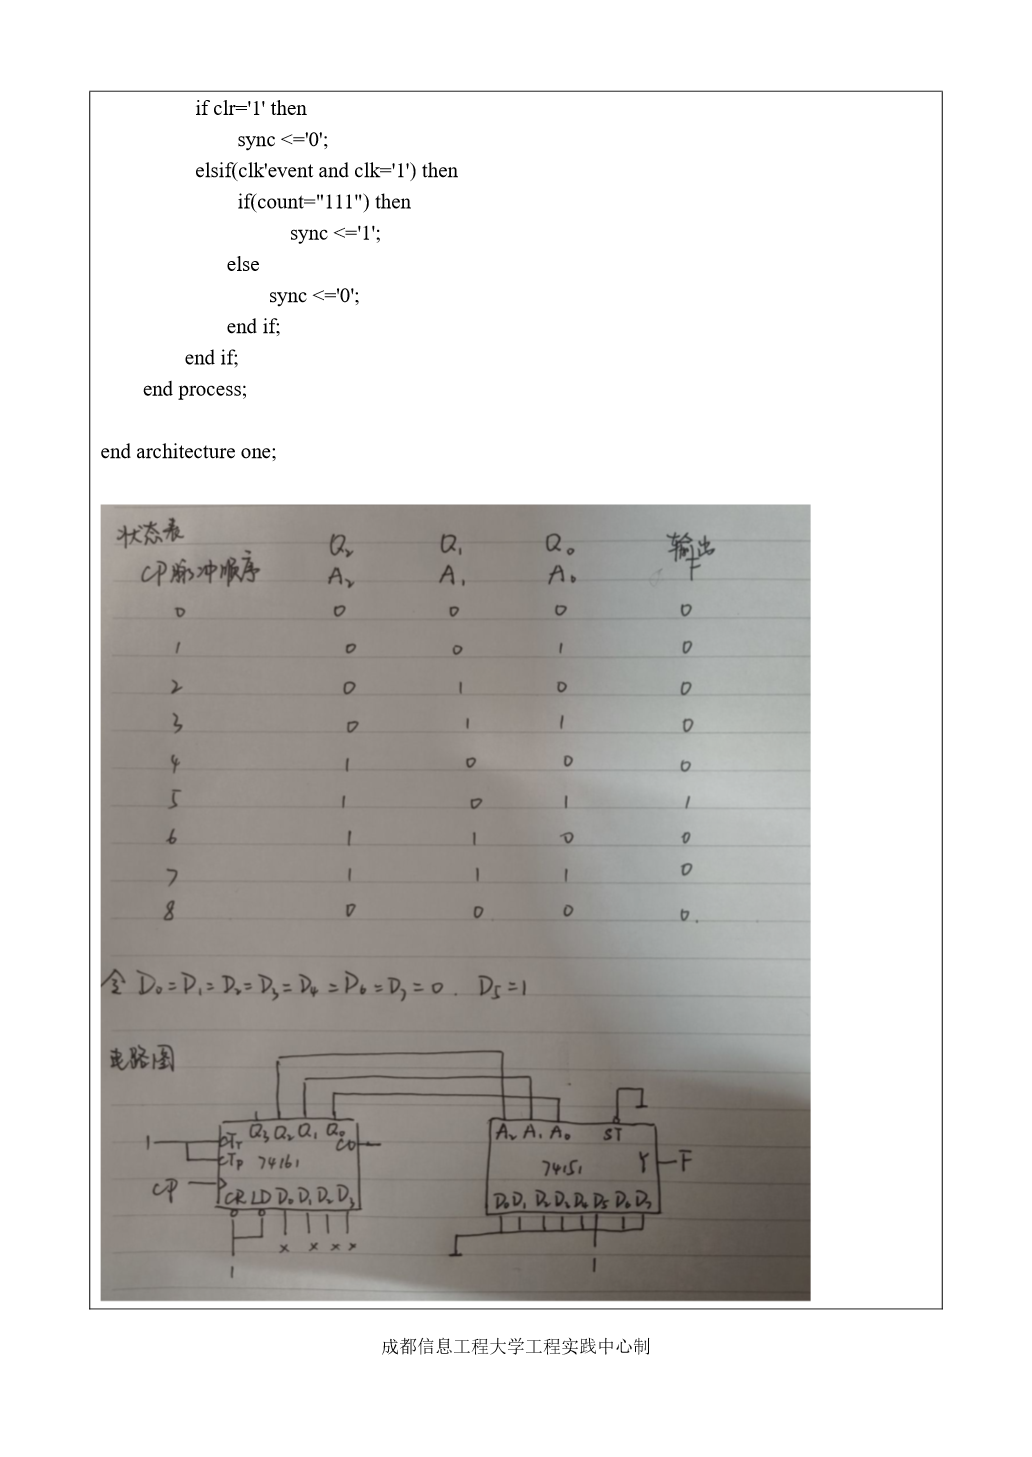 if clr='1' then
sync <='0';
elsif(clk'event and clk='1') then
if(count="111") then
sync <='1';
else
sync <='0';
end if;
end if;
end process;
end architecture one;
状态表 Q₂ Q₁ Q₀ 输出
CP脉冲顺序 A₂ A₁ A₀ F
0 0 0 0 0
1 0 0 1 0
2 0 1 0 0
3 0 1 1 0
4 1 0 0 0
5 1 0 1 1
6 1 1 0 0
7 1 1 1 0
8 0 0 0 0.
令 D₀=D₁=D₂=D₃=D₄=D₆=D₇=0. D₅=1
电路图
Q₃ Q₂ Q₁ Q₀ A₂ A₁ A₀ ST
1 CTT CO
CTP 74161 74151 Y F
CP
CR LD D₀ D₁ D₂ D₃ D₀ D₁ D₂ D₃ D₄ D₅ D₆ D₇
× × × ×
1 1
成都信息工程大学工程实践中心制